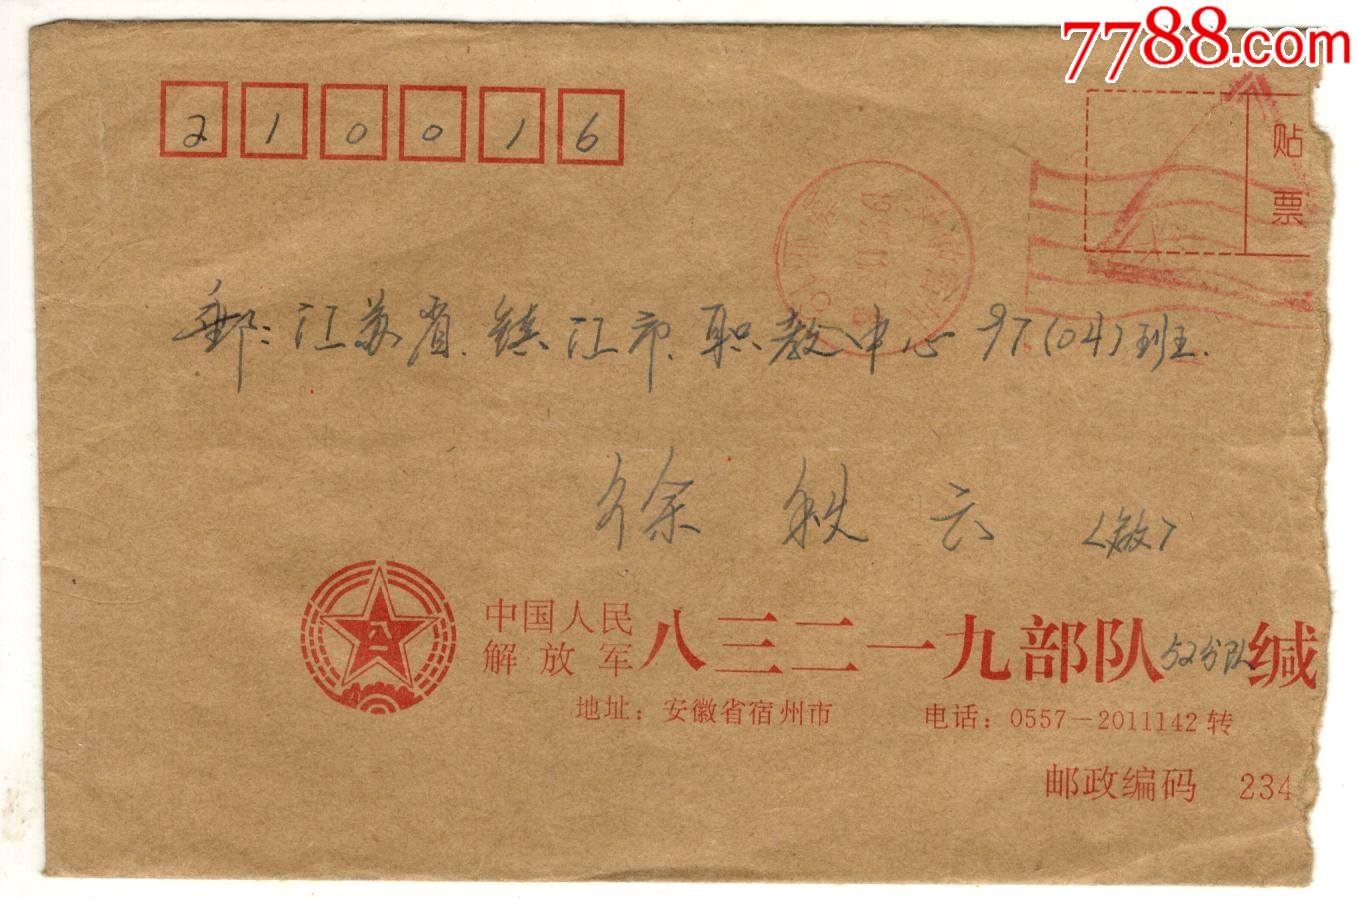 7788.com
210016
贴票
郵: 江苏省.镇江市.职教中心97(04)班.
徐 秋 云 〈啟〉
中国人民解放军 八三二一九部队 52分队 缄
地址：安徽省宿州市 电话：0557－2011142转
邮政编码 234